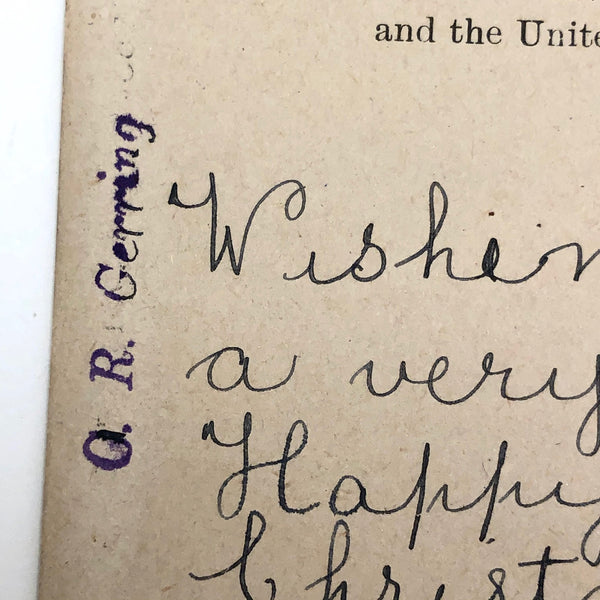 and the Unite
O. R. Gerring
Wishen
a very
Happy
Christ